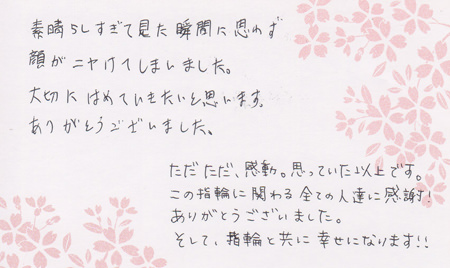 素晴らしすぎて見た瞬間に思わず
顔がニヤけてしまいました。
大切にはめていきたいと思います。
ありがとうございました。
ただただ、感動。思っていた以上です。
この指輪に関わる全ての人達に感謝!
ありがとうございました。
そして、指輪と共に幸せになります!!